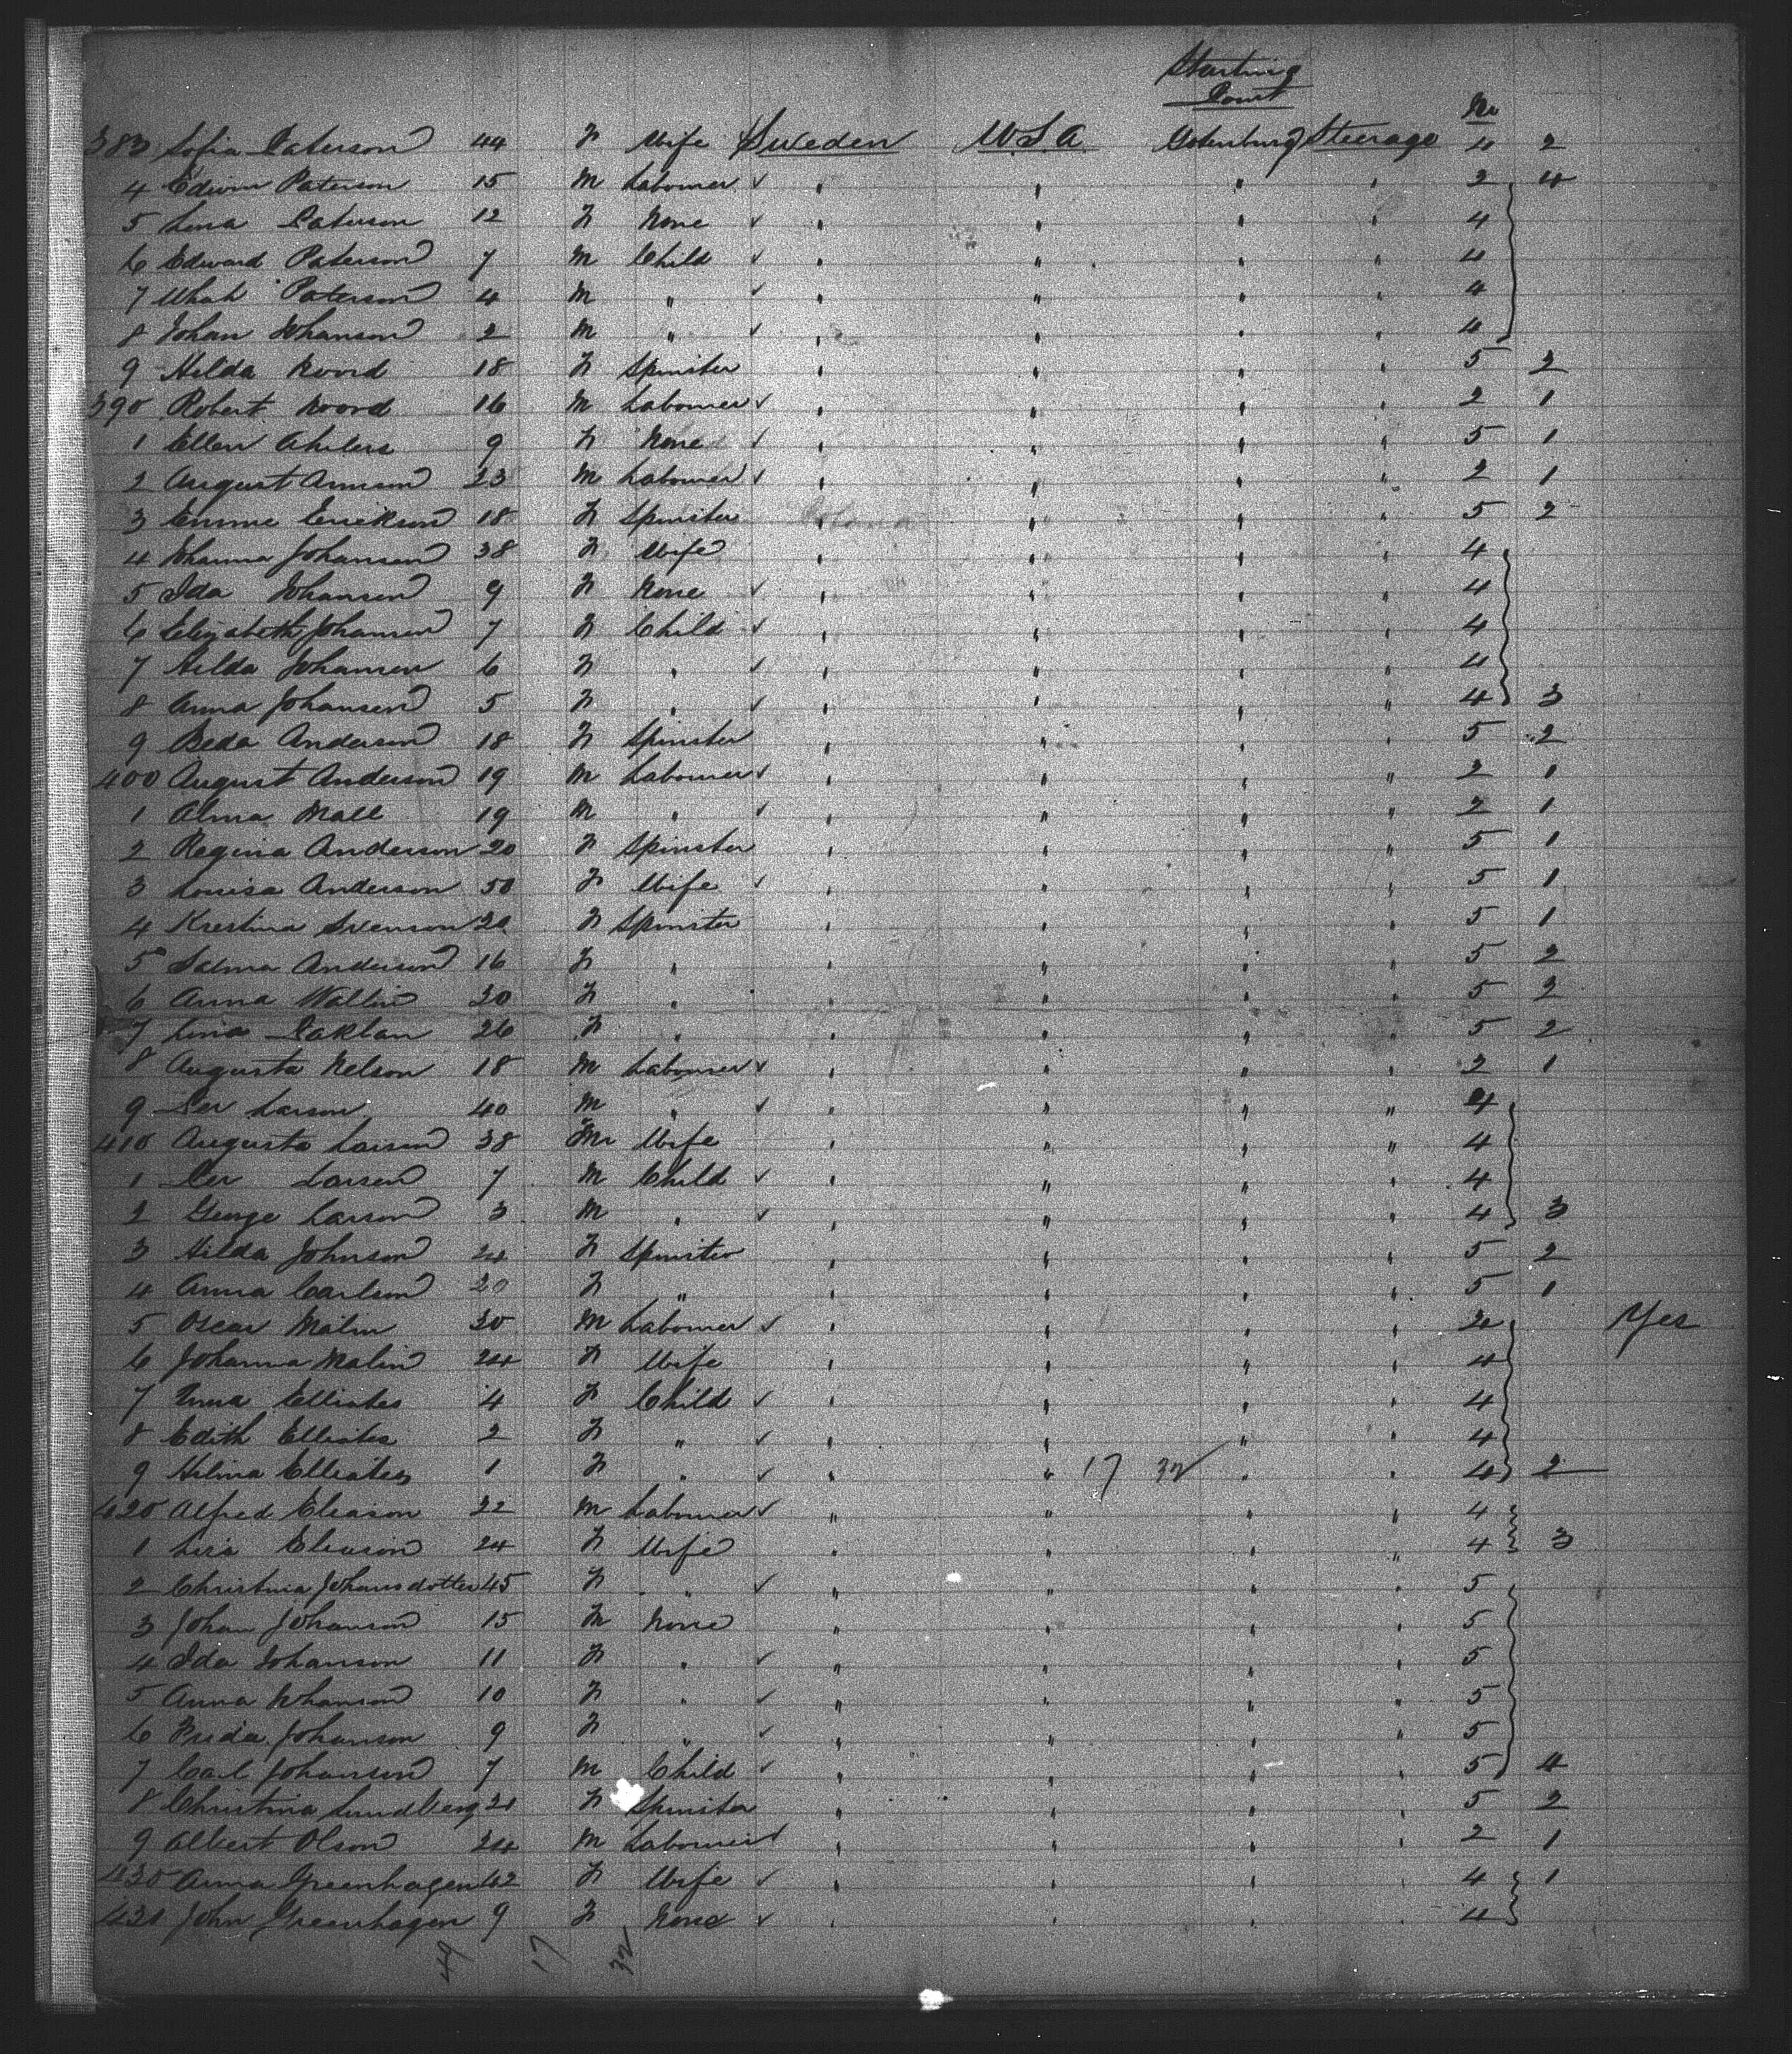 Starting
Point
No
383 Sofia Paterson 44 F Wife Sweden U S A Gotenburg Steerage 4 2
4 Edwin Paterson 15 M Labourer ✓ " " " " 2 4
5 Lena Paterson 12 F None ✓ " " " " 4
6 Edward Paterson 7 M Child ✓ " " " " 4
7 Paterson 4 M " ✓ " " " " 4
8 Johan Johanson 2 M " ✓ " " " " 4
9 Hilda Noord 18 F Spinster " " " " 5 2
390 Robert Noord 16 M Labourer ✓ " " " " 2 1
1 Ellen Ahlers 9 F None ✓ " " " " 5 1
2 August Annson 23 M Labourer ✓ " " " " 2 1
3 Emme Erickson 18 F Spinster " " " " 5 2
4 Johanna Johansen 38 F Wife " " " " 4
5 Ida Johansen 9 F None ✓ " " " " 4
6 Elizabeth Johansen 7 F Child ✓ " " " " 4
7 Hilda Johansen 6 F " ✓ " " " " 4
8 Anna Johansen 5 F " ✓ " " " " 4 3
9 Beda Anderson 18 F Spinster " " " " 5 2
400 August Anderson 19 M Labourer ✓ " " " " 2 1
1 Alma Mall 19 M " ✓ " " " " 2 1
2 Regina Anderson 20 F Spinster " " " " 5 1
3 Louisa Anderson 50 F Wife ✓ " " " " 5 1
4 Krestina Svenson 20 F Spinster " " " " 5 1
5 Salma Anderson 16 F " " " " " 5 2
6 Anna Wallin 30 F " " " " " 5 2
7 Lina 26 F " " " " " 5 2
8 Augusta Nelson 18 M Labourer ✓ " " " " 2 1
9 Per Larson 40 M " ✓ " " " " 4
410 Augusta Larson 38 Wife " " " " 4
1 Per Larsen 7 M Child ✓ " " " " 4
2 George Larson 3 M " ✓ " " " " 4 3
3 Hilda Johnson 24 F Spinster " " " " 5 2
4 Anna Carlson 20 F " " " " " 5 1
5 Oscar Malin 30 M Labourer ✓ " " " " Yes
6 Johanna Malin 24 F Wife " " " " 4
7 Elliates 4 F Child ✓ " " " " 4
8 Edith Elliates 2 F " ✓ " " " " 4
9 Hilma Elliates 1 F " ✓ " " 17 32 " " 4 2
420 Alfred Eleason 32 M Labourer ✓ " " " " 4
1 Lisa Eleason 24 F Wife " " " " 4 3
2 Christina Johansdotter 45 F " ✓ " " " " 5
3 Johan Johanson 15 M None " " " " 5
4 Ida Johanson 11 F " ✓ " " " " 5
5 Anna Johanson 10 F " ✓ " " " " 5
6 Frida Johanson 9 F " ✓ " " " " 5
7 Carl Johanson 7 M Child ✓ " " " " 5 4
8 Christina Lundberg F Spinster " " " " 5 2
9 Albert Olson 24 M Labourer ✓ " " " " 2 1
430 Anna Greenhagen 42 F Wife ✓ " " " " 4 1
431 John Greenhagen 9 F None ✓ " " " " 4
49 17 32